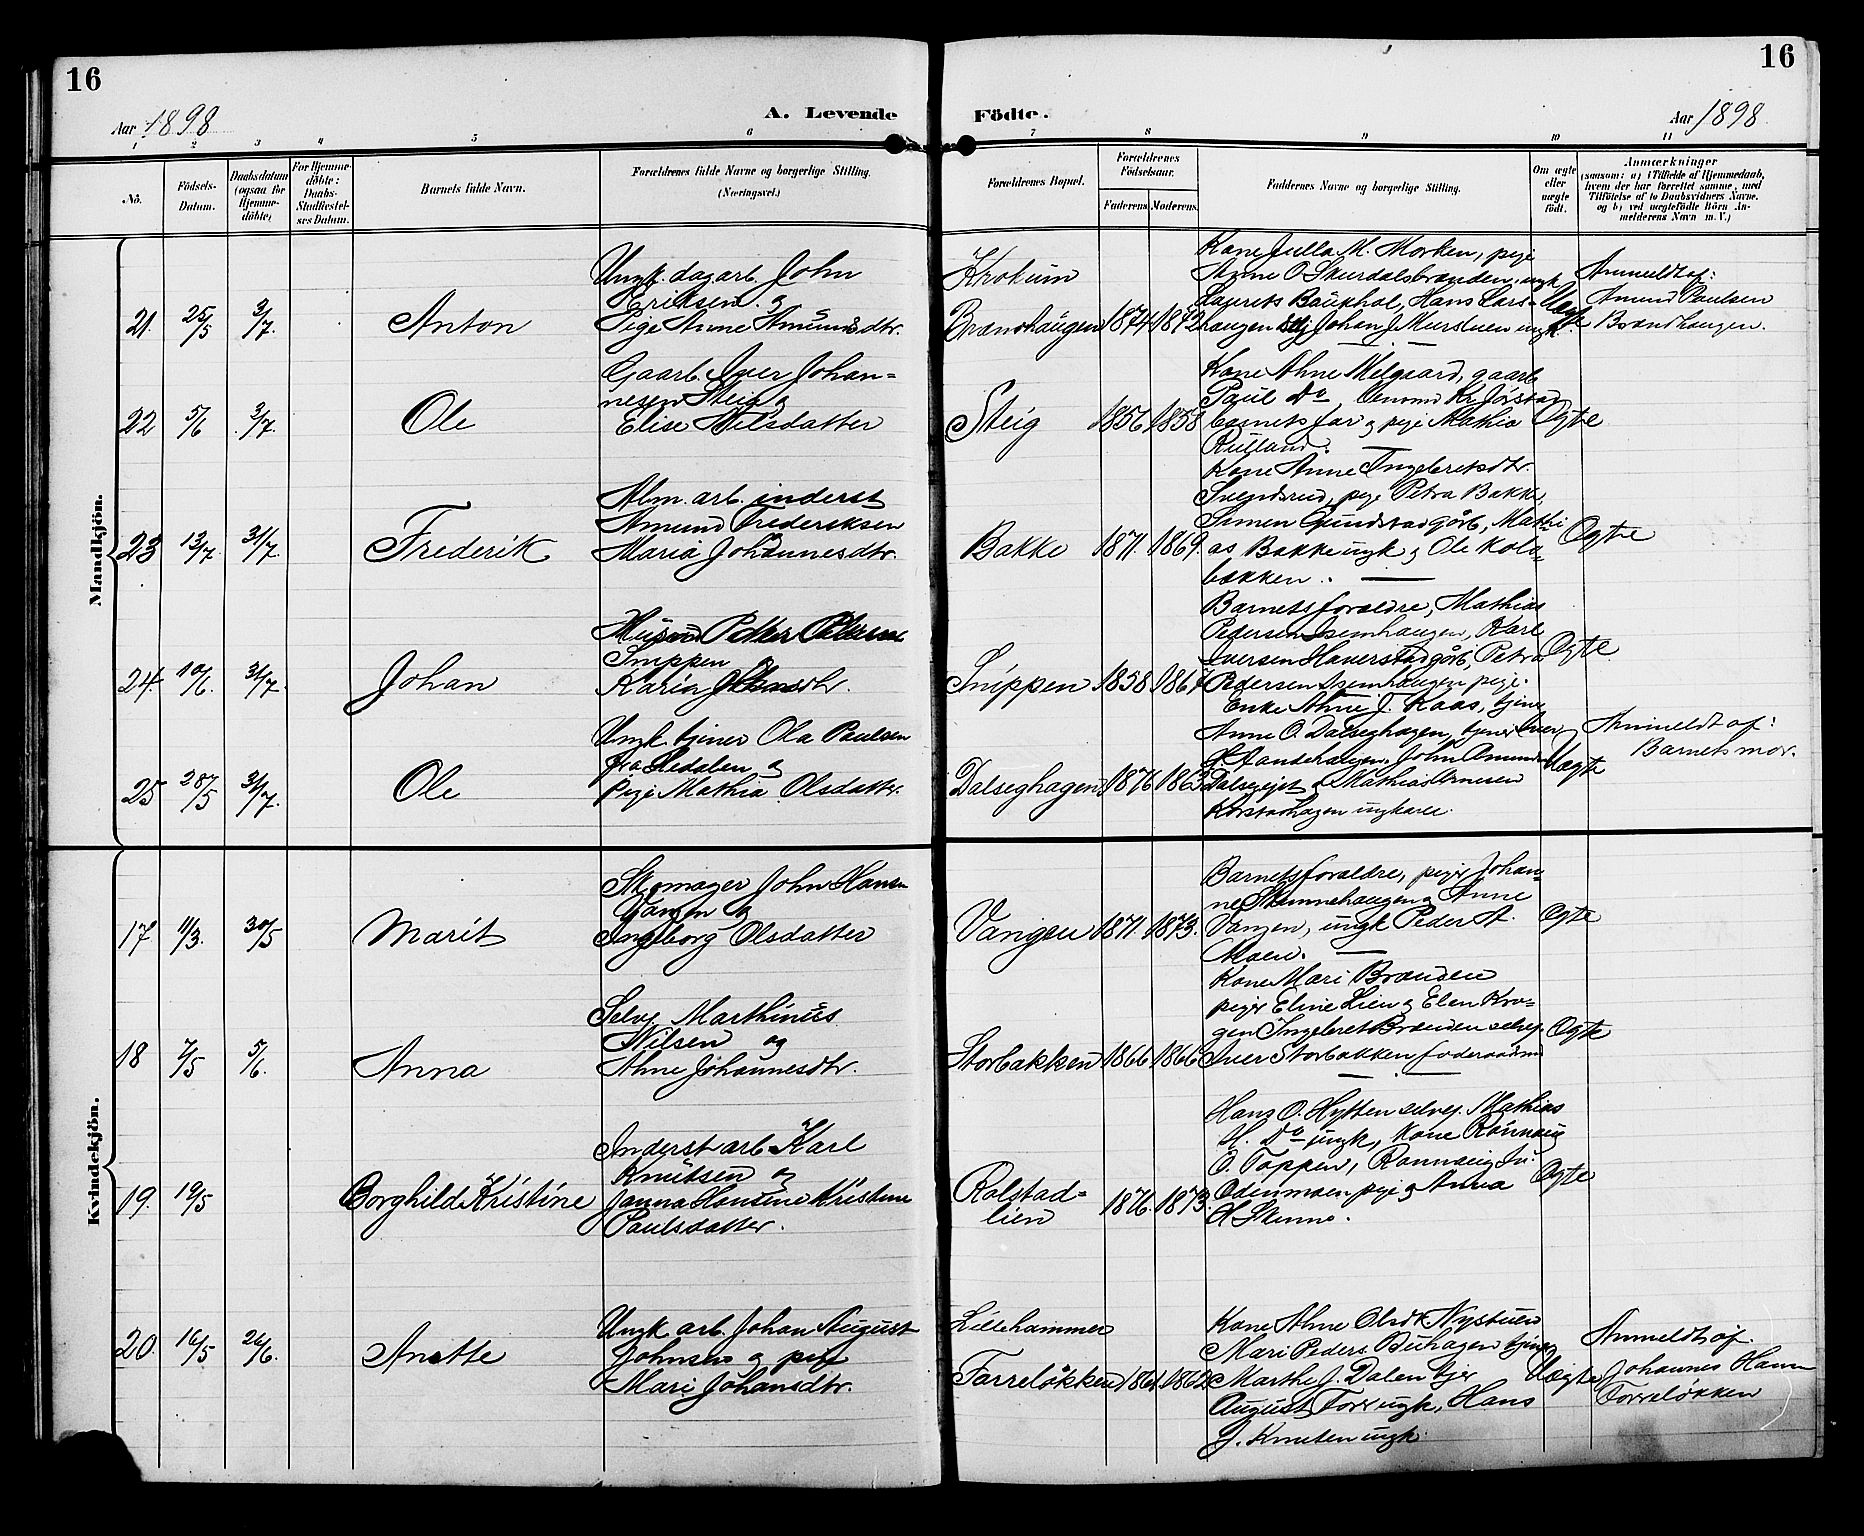 16
16
Aar 1898
A. Levende
Födte.
Aar 1898
1 2 3 4 5 6 7 8 9 10 11
Nö.
Födsels-
Datum.
Daabsdatum
(ogsaa for
Hjemme-
döbte)
For Hjemme-
döbte:
Daabs-
Stadfæstel-
ses Datum.
Barnets fulde Navn.
Forældrenes fulde Navne og borgerlige Stilling.
(Næringsvei.)
Forældrenes Bopæl.
Forældrenes
Födselsaar.
Faderens. Moderens.
Faddernes Navne og borgerlige Stilling.
Om ægte
eller
uægte
födt.
Anmærkninger
(saasom: a) i Tilfælde af Hjemmedaab,
hvem der har forrettet samme, med
Tilföielse af to Daabsvidners Navne.
og b) ved uægtefödte Börn An-
melderens Navn m. V.)
Mandkjön.
21. 25/5 3/7. Anton
Ungk. dagarb. John
Eriksen og
Pige Anne Amundsdtr.
Krokum
Brændhaugen 1874 1872
Kone Julla M. Morken, pige
Anne O. Skurdalsbrænden, ungk
Laurits Baukhol, Hans Lars-
haugen selvej Johan J. Murstuen ungk.
Uægte
Anmeldt af:
Amund Paulsen
Brændhaugen.
22 5/6 3/7. Ole
Gaarb. Iver Johan-
nesen Steig og
Elise Nilsdatter
Steig 1856 1858
Kone Ahne Melgaard, gaarb
Paul Do, Amund Kr. Jörstad
barnets far og pige Mathia
Rulland.
Ægte
23 13/7. 31/7. Frederik
Alm. arb. inderst
Amund Frederiksen
Maria Johannesdtr.
Bakke 1871. 1869.
Kone Anne Ingebretsdtr.
Svendsrud, pige Petra Bakke,
Simen Gundstad gårb, Mathi-
as Bakke ungk og Ole Kola-
bækken.
Ægte
24. 10/6. 31/7. Johan
Husmd Petter Pettersen
Snippen og
Karin Johnsdtr.
Snippen 1858 1867
Barnets forældre, Mathias
Pedersen Isumhaugen, Karl
Iversen Haverstad gårb, Petra
Pedersen Isumhaugen pige.
Ægte
25 28/5 31/7. Ole
Ungk. tjener Ola Paulsen
fra Ledalen og
Pige Mathia Olsdatter.
Dalseghagen 1876 1863
Enke Ahne J. Kaas, tjener
Anne O. Dalseghagen, tjener Iver
J. Sandehaugen, John Amunds
Dalsegejet og Mathias Arnesen
Korstadhagen ungkarle.
Uægte
Anmeldt af:
Barnets mor.
Kvindekjön.
17 11/3. 30/5 Marit
Skomager John Hansen
Vangen og
Ingeborg Olsdatter
Vangen 1871. 1873.
Barnets forældre, piger Johan-
ne Skunnehaugen og Anne
Vangen, ungk Peder A.
Moen.
Ægte
18 7/5 5/6. Anna
Selvej Marthinus
Nilsen og
Ahne Johannesdtr.
Storbakken 1866 1866
Kone Mari Brænden
piger Eline Lien og Elen Kro-
gen Ingebret Brænden selvej.
Iver Storbakken foderaadmd
Ægte
19. 19/5 Borghild Kristine
Inderst arb Karl
Knutsen og
Janna Hansine Kristine
Paulsdatter.
Rolstad-
lien 1876. 1873.
Hans O. Hytten selvej. Mathias
H. Do ungk, Kone Rönnaug
O. Toppen, Rannveig Ju.
Odenmoen pige og Anna
H Skunno.
Ægte
20. 16/5 26/6. Anette
Ungk arb. Johan August
Johnsen og pige
Mari Johansdtr.
Lillehammer
Forrelökken 1861. 1862
Kone Ahne Olsdt Nystuen
Mari Peders. Buhagen tjener
Marthe J. Dalen tjer
August Forr ungk, Hans
J. Knutsen ungk.
Uægte
Anmeldt af.
Johannes Hansen
Forrelökken